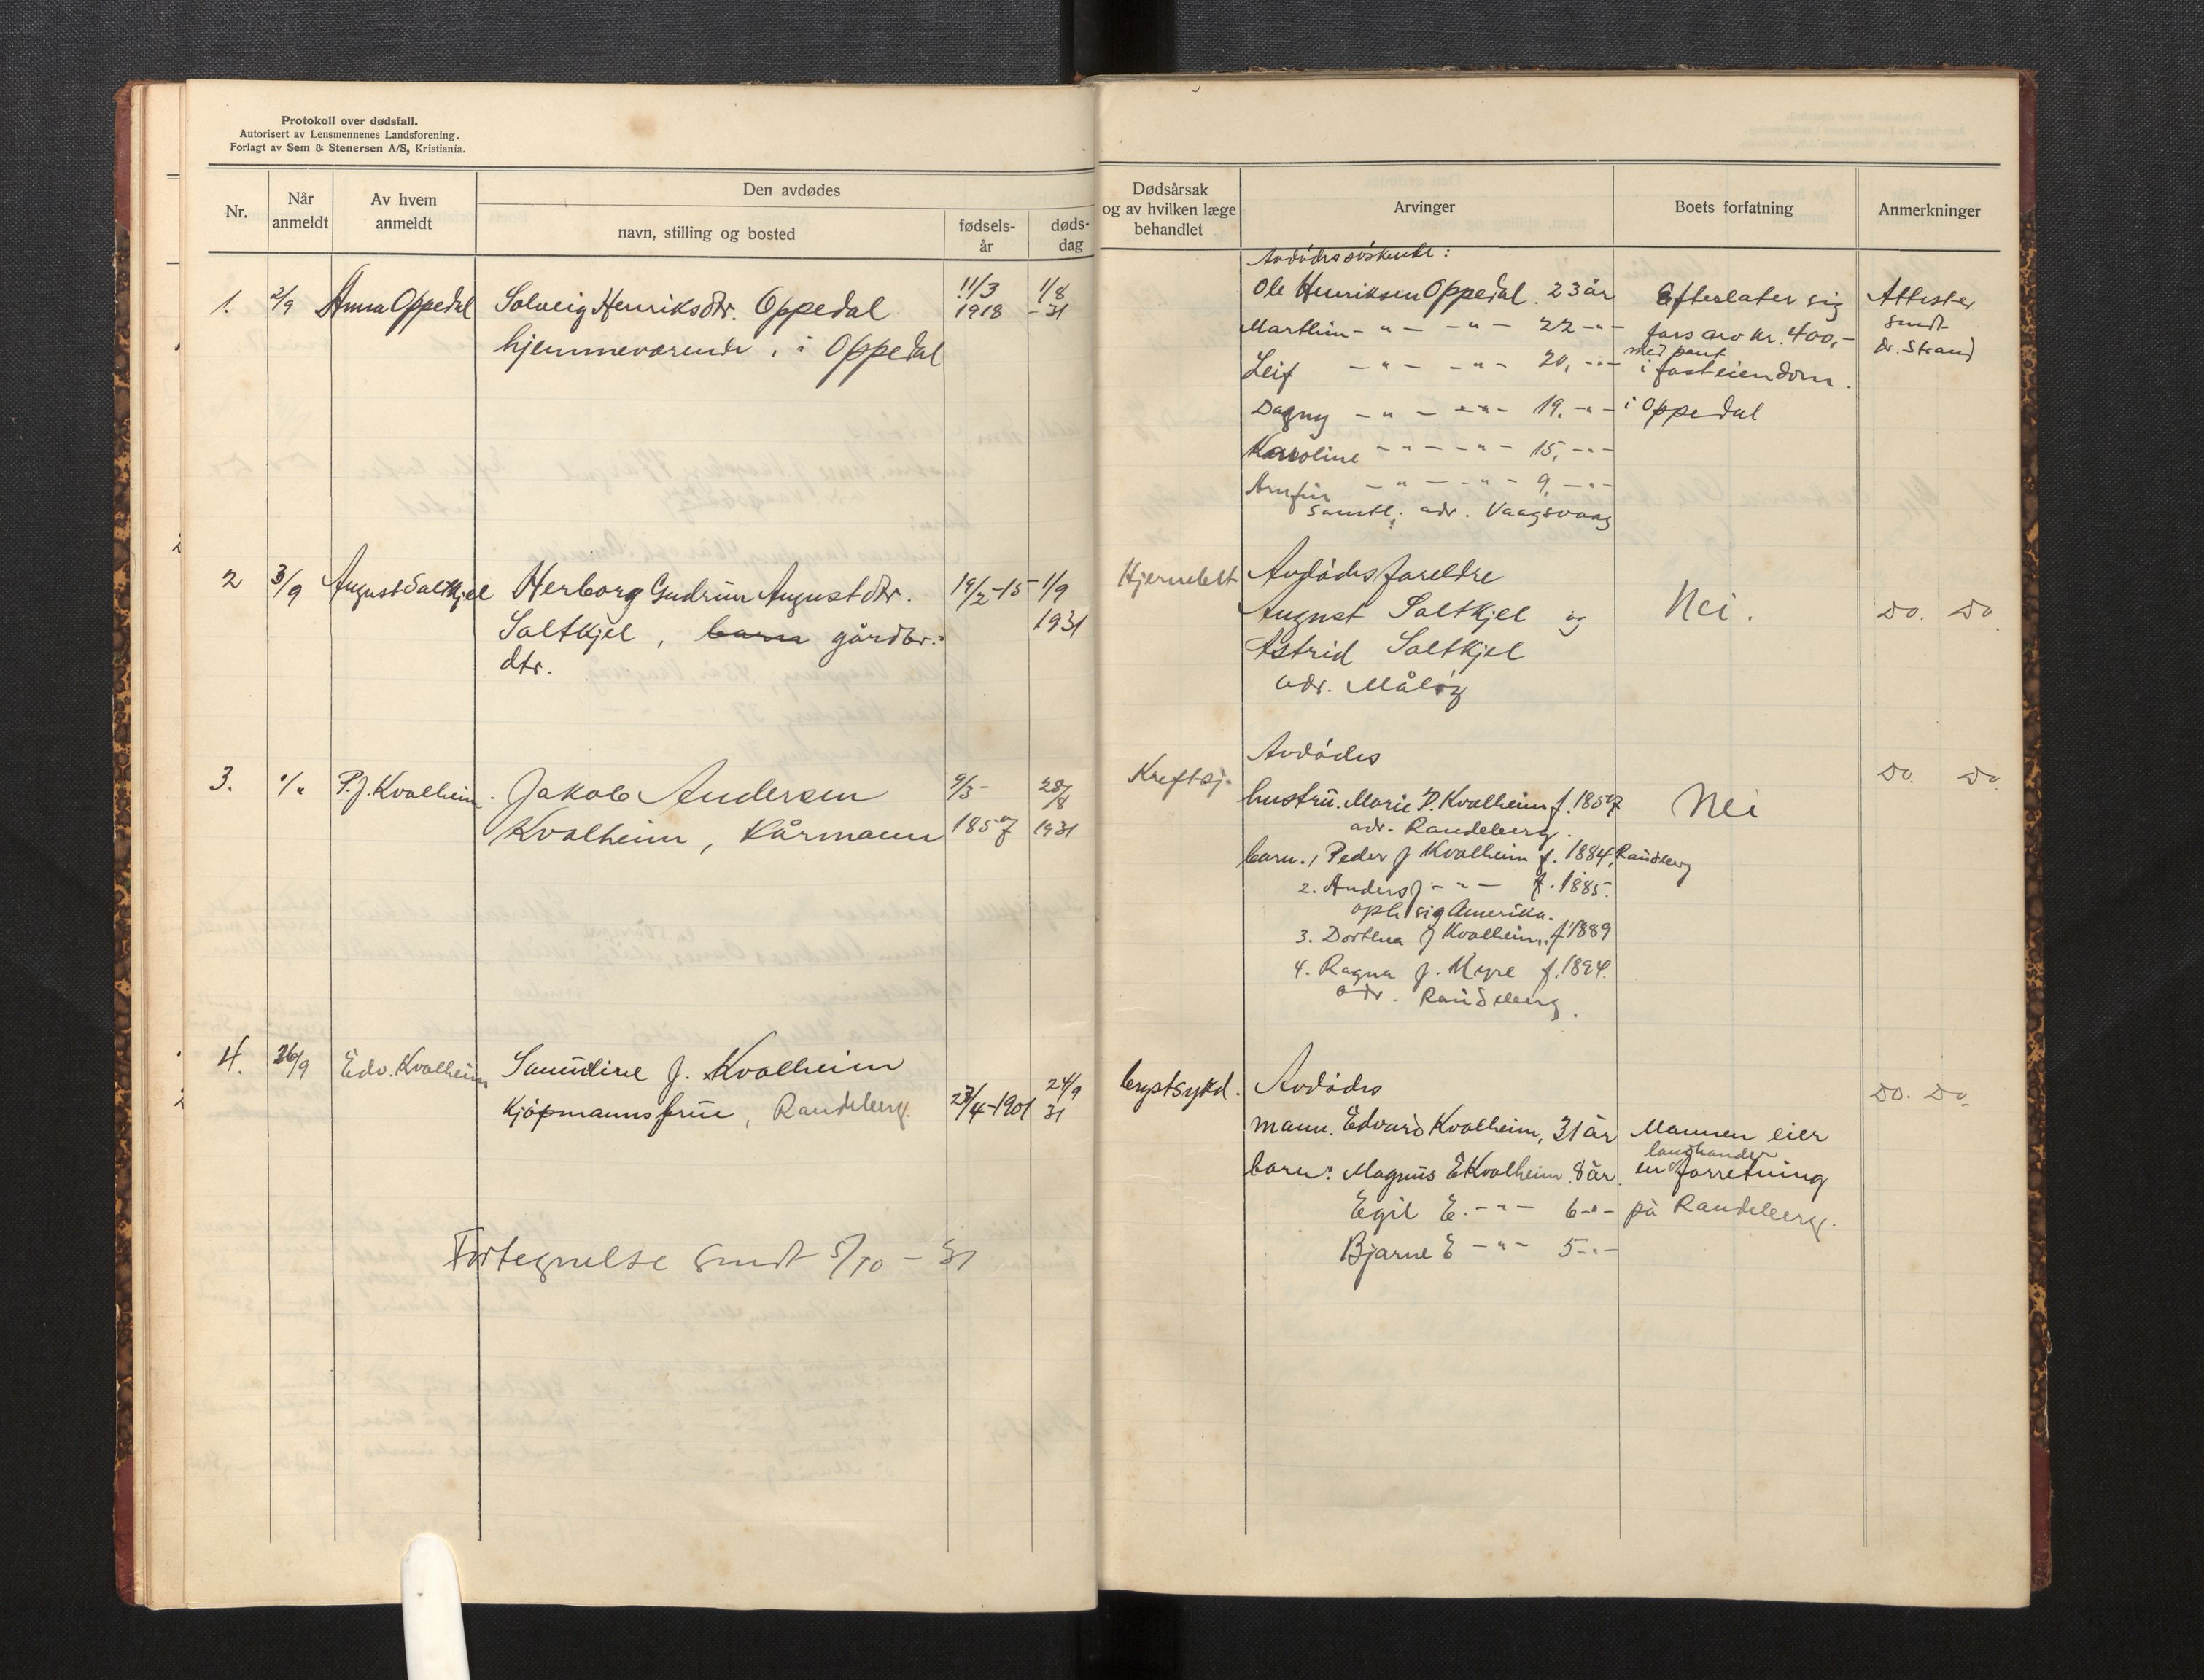 Protokoll over dødsfall.
Autorisert av Lensmennenes Landsforening.
Forlagt av Sem & Stenersen A/S, Kristiania.
Nr.
Når anmeldt
Av hvem anmeldt
Den avdødes
navn, stilling og bosted
fødsels-år
døds-dag
Dødsårsak og av hvilken læge behandlet
Arvinger
Boets forfatning
Anmerkninger
1. 2/9 Anna Oppedal Solveig Henriksdtr. Oppedal 11/3 1/8
hjemmeværende, i Oppedal 1918 -31
Avdødes søskende:
Ole Henriksen Oppedal. 23 år
Marthin -"- -"- 22 -"-
Leif -"- -"- 20, -"-
Dagny -"- -"- 19, -"-
Karoline -"- -"- 15, -"-
Arnfin -"- -"- 9, -"-
samtl. adr. Vaagsvaag
Efterlater sig
fars arv kr. 400,-
med pant
i fast eiendom.
i Oppedal
Attester
sendt
dr. Strand
2 3/9 August Saltkjel Herborg Gudrun Augustdtr. 19/2-15 1/9
Saltkjel, barn gårdbr. 1931
dtr.
Hjernebet
Avdødes foreldre
August Saltkjel og
Astrid Saltkjel
adr. Måløy
Nei.
Do. Do.
3. "/" P.J. Kvalheim. Jakob Andersen 9/5- 28/8
Kvalheim, Kårmann 1857 1931
Kreftsj.
Avdødes
hustru. Marie P. Kvalheim f. 1857
adr. Raudeberg.
barn. 1 Peder J Kvalheim f. 1884, Raudeberg
2. Anders J -"- f. 1885.
oph. sig Amerika.
3. Dorthea J Kvalheim, f 1889
4. Ragna J. Myre f. 1894.
adr. Raudeberg.
Nei
Do. Do.
4. 26/9 Edv. Kvalheim Samueline J. Kvalheim
Kjøpmannsfrue, Raudeberg. 23/4-1901 24/9 31
brystsykd.
Avdødes
mann. Edvard Kvalheim, 31 år
barn: Magnus E Kvalheim 8 år
Egil E. -"- 6 -"-
Bjarne E -"- 5 -"-
Mannen eier
landhander
en forretning
på Raudeberg.
Do. Do.
Fortegnelse sendt 5/10 - 31